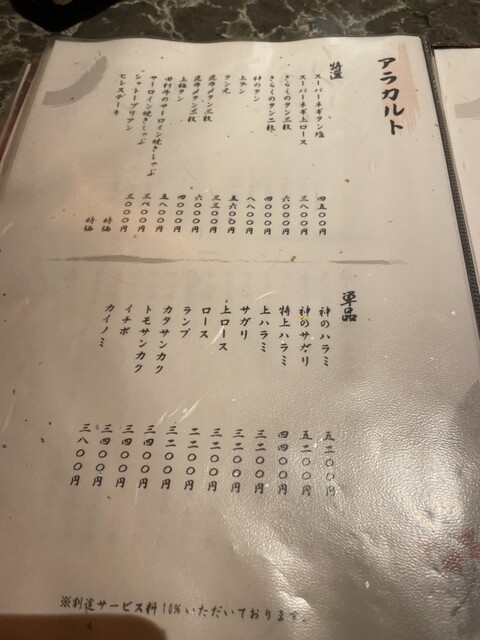 アラカルト
特選
スーパーネギタン塩 四五〇〇円
スーパーネギ上ロース 三八〇〇円
きらくのタン三枚 六〇〇〇円
きらくのタン二枚 四〇〇〇円
神のタン 八八〇〇円
上タン 五六〇〇円
タン元 三三〇〇円
昆布〆タン三枚 六〇〇〇円
昆布〆タン二枚 四〇〇〇円
上極タン 五八〇〇円
田村牛のサーロイン焼きしゃぶ 三八〇〇円
サーロイン焼きしゃぶ 三〇〇〇円
シャトーブリアン 時価
ヒレステーキ 時価
単品
神のハラミ 五二〇〇円
神のサガリ 五二〇〇円
特上ハラミ 四四〇〇円
上ハラミ 三二〇〇円
サガリ 三二〇〇円
上ロース 三二〇〇円
ロース 二二〇〇円
ランプ 三二〇〇円
カタサンカク 三四〇〇円
トモサンカク 三四〇〇円
イチボ 三四〇〇円
カイノミ 三八〇〇円
※別途サービス料10%いただいております。